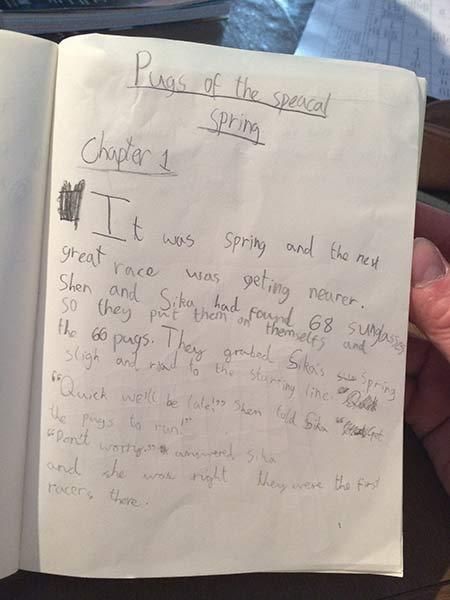 Pugs of the speacal
spring
Chapter 1
It was spring and the next
great race was geting nearer.
Shen and Sika had found 68 sunglasses
so they put them on themselves and
the 66 pugs. They grabed Sika's spring
sligh and to the starring line.
"Quick we'll be late!" Shen told Sika "Get
the pugs to run!"
"Don't worry." answered Sika
and she was right they were the first
racers there.